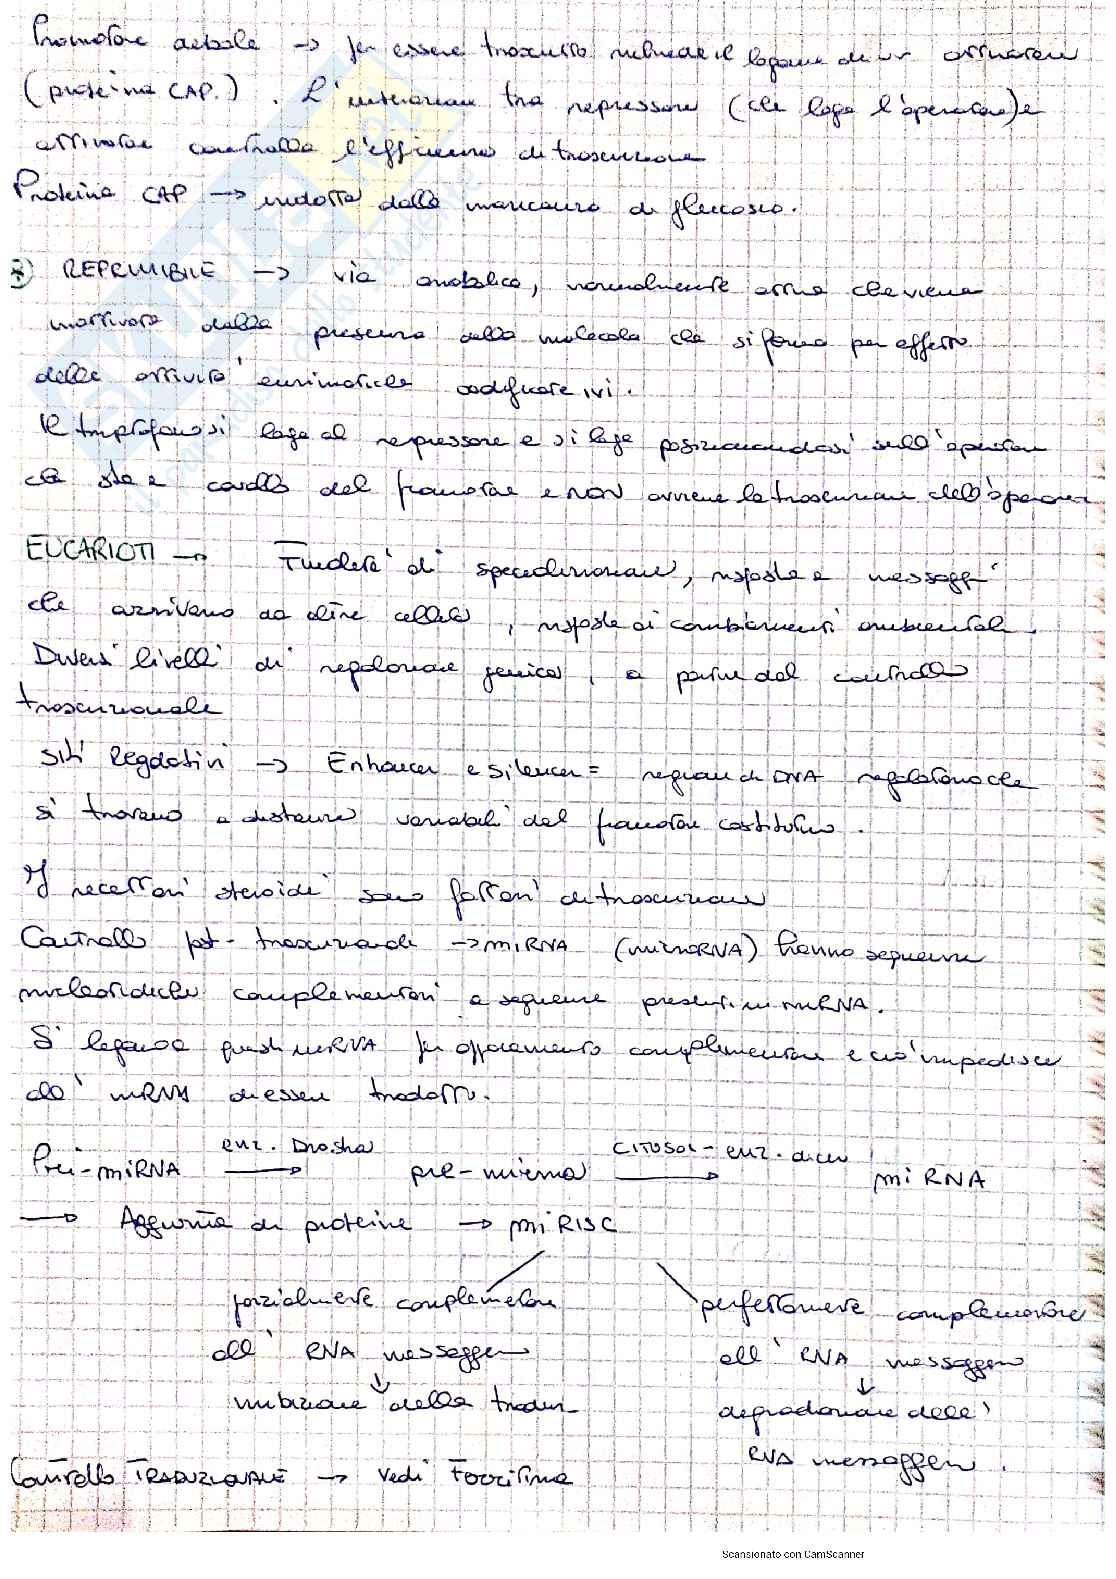 Promotore debole → per essere trascritto richiede il legame di un attivatore
(proteina CAP.). L'interazione tra repressore (che lega l'operatore) e
attivatore controlla l'efficienza di trascrizione
Proteina CAP → indotta dalla mancanza di glucosio.
REPRIMIBILE → via anabolica, normalmente attiva che viene
inattivata dalla presenza della molecola che si forma per effetto
delle attività enzimatiche codificate ivi.
Il triptofano si lega al repressore e si lega posizionandosi sull'operatore
che sta a cavallo del promotore e NON avviene la trascrizione dell'operone
EUCARIOTI → di specializzazione, risposte a messaggi
che arrivano da altre cellule, risposte ai cambiamenti ambientali.
Diversi livelli di regolazione genica, a partire dal controllo
trascrizionale
Siti Regolativi → Enhancer e silencer = regioni di DNA regolatorio che
si trovano a distanze variabili dal promotore costitutivo.
I recettori steroidei sono fattori di trascrizione
Controllo post-trascrizionale → miRNA (microRNA) hanno sequenze
nucleotidiche complementari a sequenze presenti in mRNA.
Si legano a questi mRNA per appaiamento complementare e ciò impedisce
all' mRNA di essere tradotto.
enz. Drosha CITOSOL - enz. dicer
Pri-miRNA → pre-mirna → miRNA
→ Aggiunta di proteine → miRISC
parzialmente complementare perfettamente complementare
all' RNA messaggero all' RNA messaggero
↓ ↓
inibizione della traduz. degradazione dell'
RNA messaggero.
Controllo TRADUZIONALE → vedi Ferritina
Scansionato con CamScanner